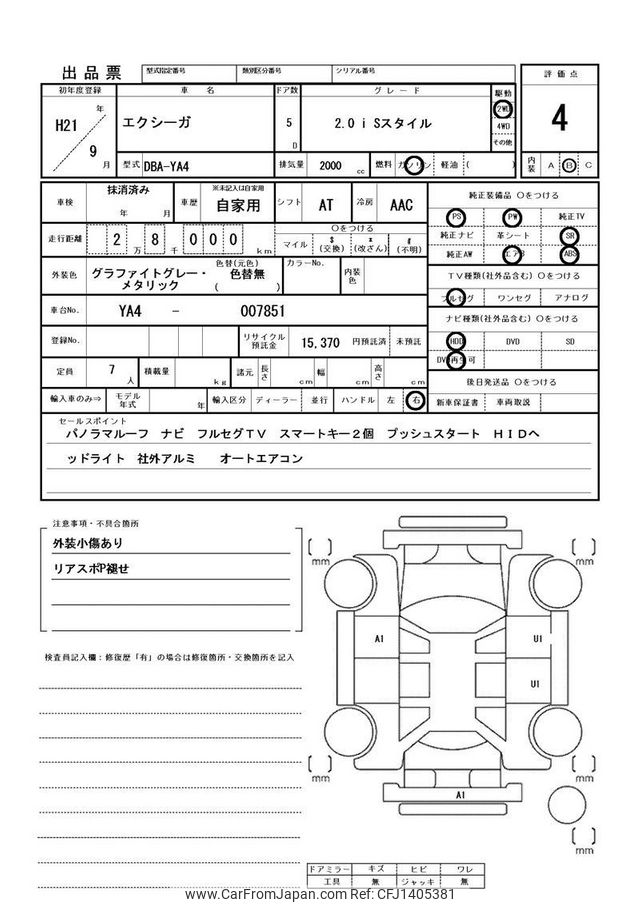 出品票 型式指定番号 類別区分番号 シリアル番号 評価点
初年度登録 車名 ドア数 グレード 駆動
H21 年 9 月 エクシーガ 5 D 2.0 i Sスタイル 2WD 4WD その他 4
型式 DBA-YA4 排気量 2000 cc 燃料 ガソリン 軽油 ( ) 内装 A B C
車検 抹消済み 年 月 車歴 ※未記入は自家用 自家用 シフト AT 冷房 AAC 純正装備品 ○をつける
PS PW 純正TV
走行距離 2 万 8 千 0 0 0 km ○をつける マイル $ (交換) * (改ざん) # (不明) 純正ナビ 革シート SR
純正AW エアB ABS
外装色 グラファイトグレー・メタリック 色替(元色) 色替無 ( ) カラーNo. 内装色 TV種類(社外品含む) ○をつける
フルセグ ワンセグ アナログ
車台No. YA4 - 007851 ナビ種類(社外品含む) ○をつける
登録No. リサイクル預託金 15,370 円預託済 未預託 HDD DVD SD
DVD再生可
定員 7 人 積載量 kg 諸元 長さ cm 幅 cm 高さ cm 後日発送品 ○をつける
輸入車のみ⇒ モデル年式 年 輸入区分 ディーラー 並行 ハンドル 左 右 新車保証書 車両取説
セールスポイント
パノラマルーフ ナビ フルセグTV スマートキー2個 プッシュスタート HIDヘ
ッドライト 社外アルミ オートエアコン
注意事項・不具合箇所
外装小傷あり
リアスポP褪せ
検査員記入欄:修復歴「有」の場合は修復箇所・交換箇所を記入
〔 〕 mm 〔 〕 mm
A1 U1
U1
〔 〕 mm 〔 〕 mm
A1
〔 〕 mm
ドアミラー キズ ヒビ ワレ
工具 無 ジャッキ 無
www.CarFromJapan.com Ref: CFJ1405381